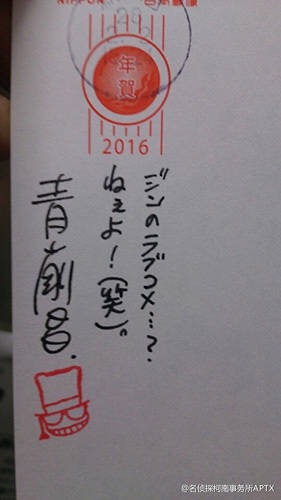 NIPPON 日本郵便
28
年賀
2016
ジンのラブコメ…?
ねぇよ!(笑)。
青山剛昌.
@名侦探柯南事务所APTX